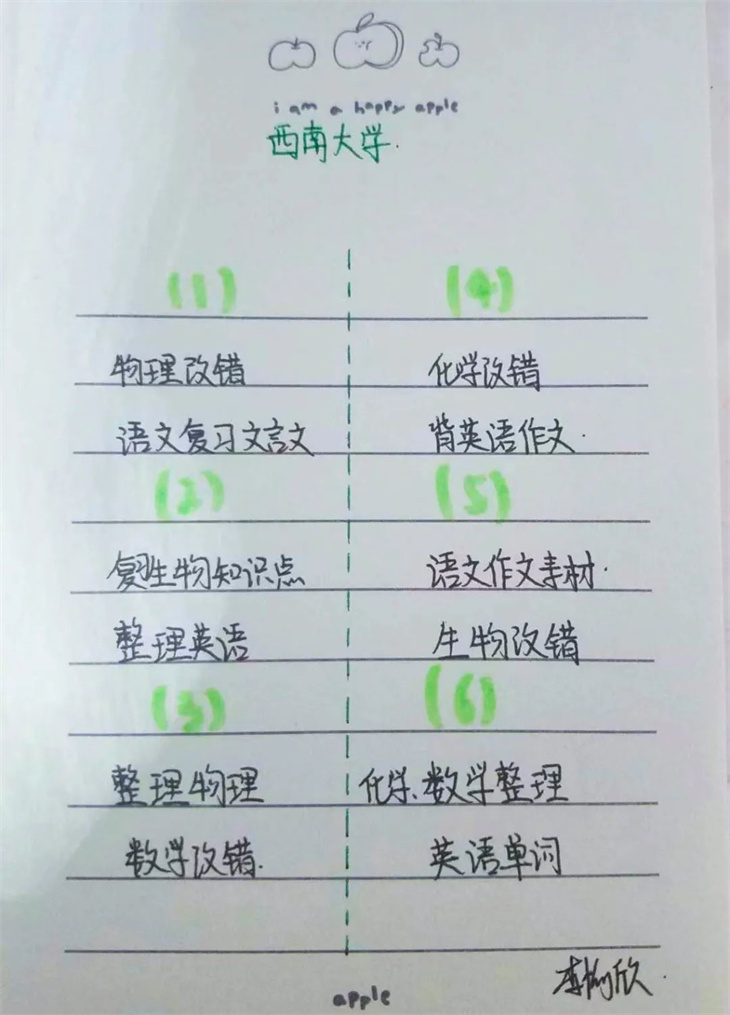 i am a happy apple
西南大学.
(1)
物理改错
语文复习文言文
(2)
复习生物知识点
整理英语
(3)
整理物理
数学改错.
(4)
化学改错
背英语作文.
(5)
语文作文素材.
生物改错
(6)
化学、数学整理
英语单词
apple